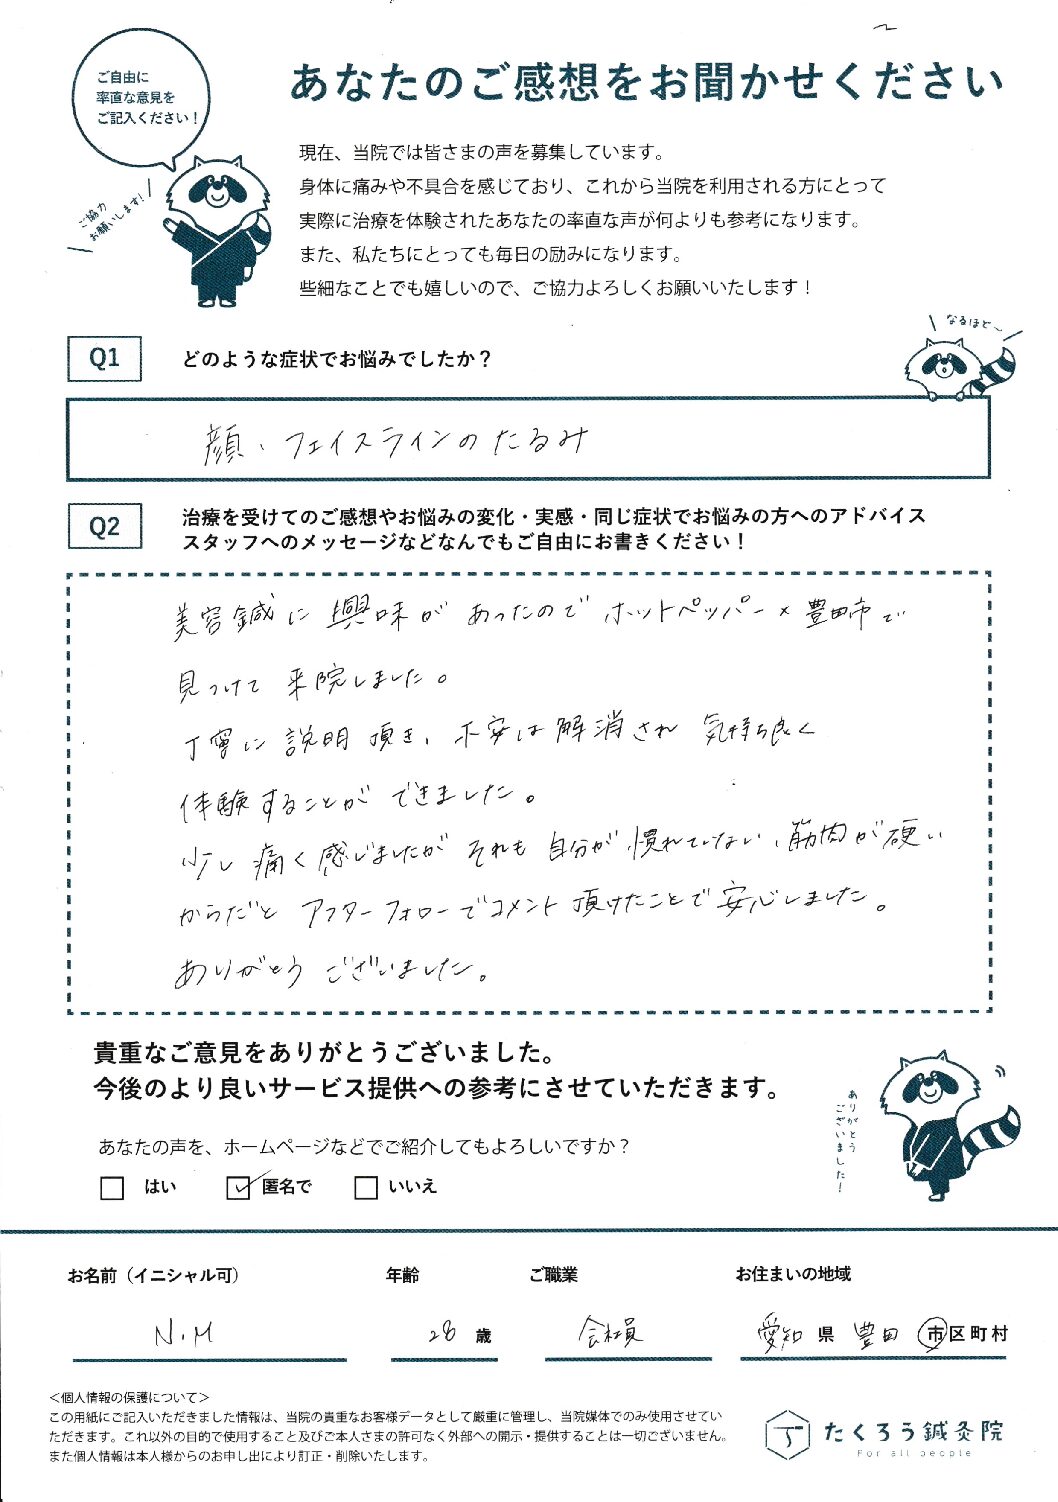 ご自由に
率直な意見を
ご記入ください！
あなたのご感想をお聞かせください
ご協力
お願いします！
現在、当院では皆さまの声を募集しています。
身体に痛みや不具合を感じており、これから当院を利用される方にとって
実際に治療を体験されたあなたの率直な声が何よりも参考になります。
また、私たちにとっても毎日の励みになります。
些細なことでも嬉しいので、ご協力よろしくお願いいたします！
なるほど〜
Q1 どのような症状でお悩みでしたか？
顔、フェイスラインのたるみ
Q2 治療を受けてのご感想やお悩みの変化・実感・同じ症状でお悩みの方へのアドバイス
スタッフへのメッセージなどなんでもご自由にお書きください！
美容鍼に興味があったのでホットペッパー×豊田市で
見つけて来院しました。
丁寧に説明頂き、不安は解消され気持ち良く
体験することができました。
少し痛く感じましたがそれも自分が慣れていない、筋肉が硬い
からだとアフターフォローでコメント頂けたことで安心しました。
ありがとうございました。
貴重なご意見をありがとうございました。
今後のより良いサービス提供への参考にさせていただきます。
ありがとう
ございました！
あなたの声を、ホームページなどでご紹介してもよろしいですか？
はい 匿名で いいえ
お名前（イニシャル可） 年齢 ご職業 お住まいの地域
N.M 28 歳 会社員 愛知 県 豊田 市区町村
＜個人情報の保護について＞
この用紙にご記入いただきました情報は、当院の貴重なお客様データとして厳重に管理し、当院媒体でのみ使用させてい
ただきます。これ以外の目的で使用すること及びご本人さまの許可なく外部への開示・提供することは一切ございません。
また個人情報は本人様からのお申し出により訂正・削除いたします。
たくろう鍼灸院
For all people